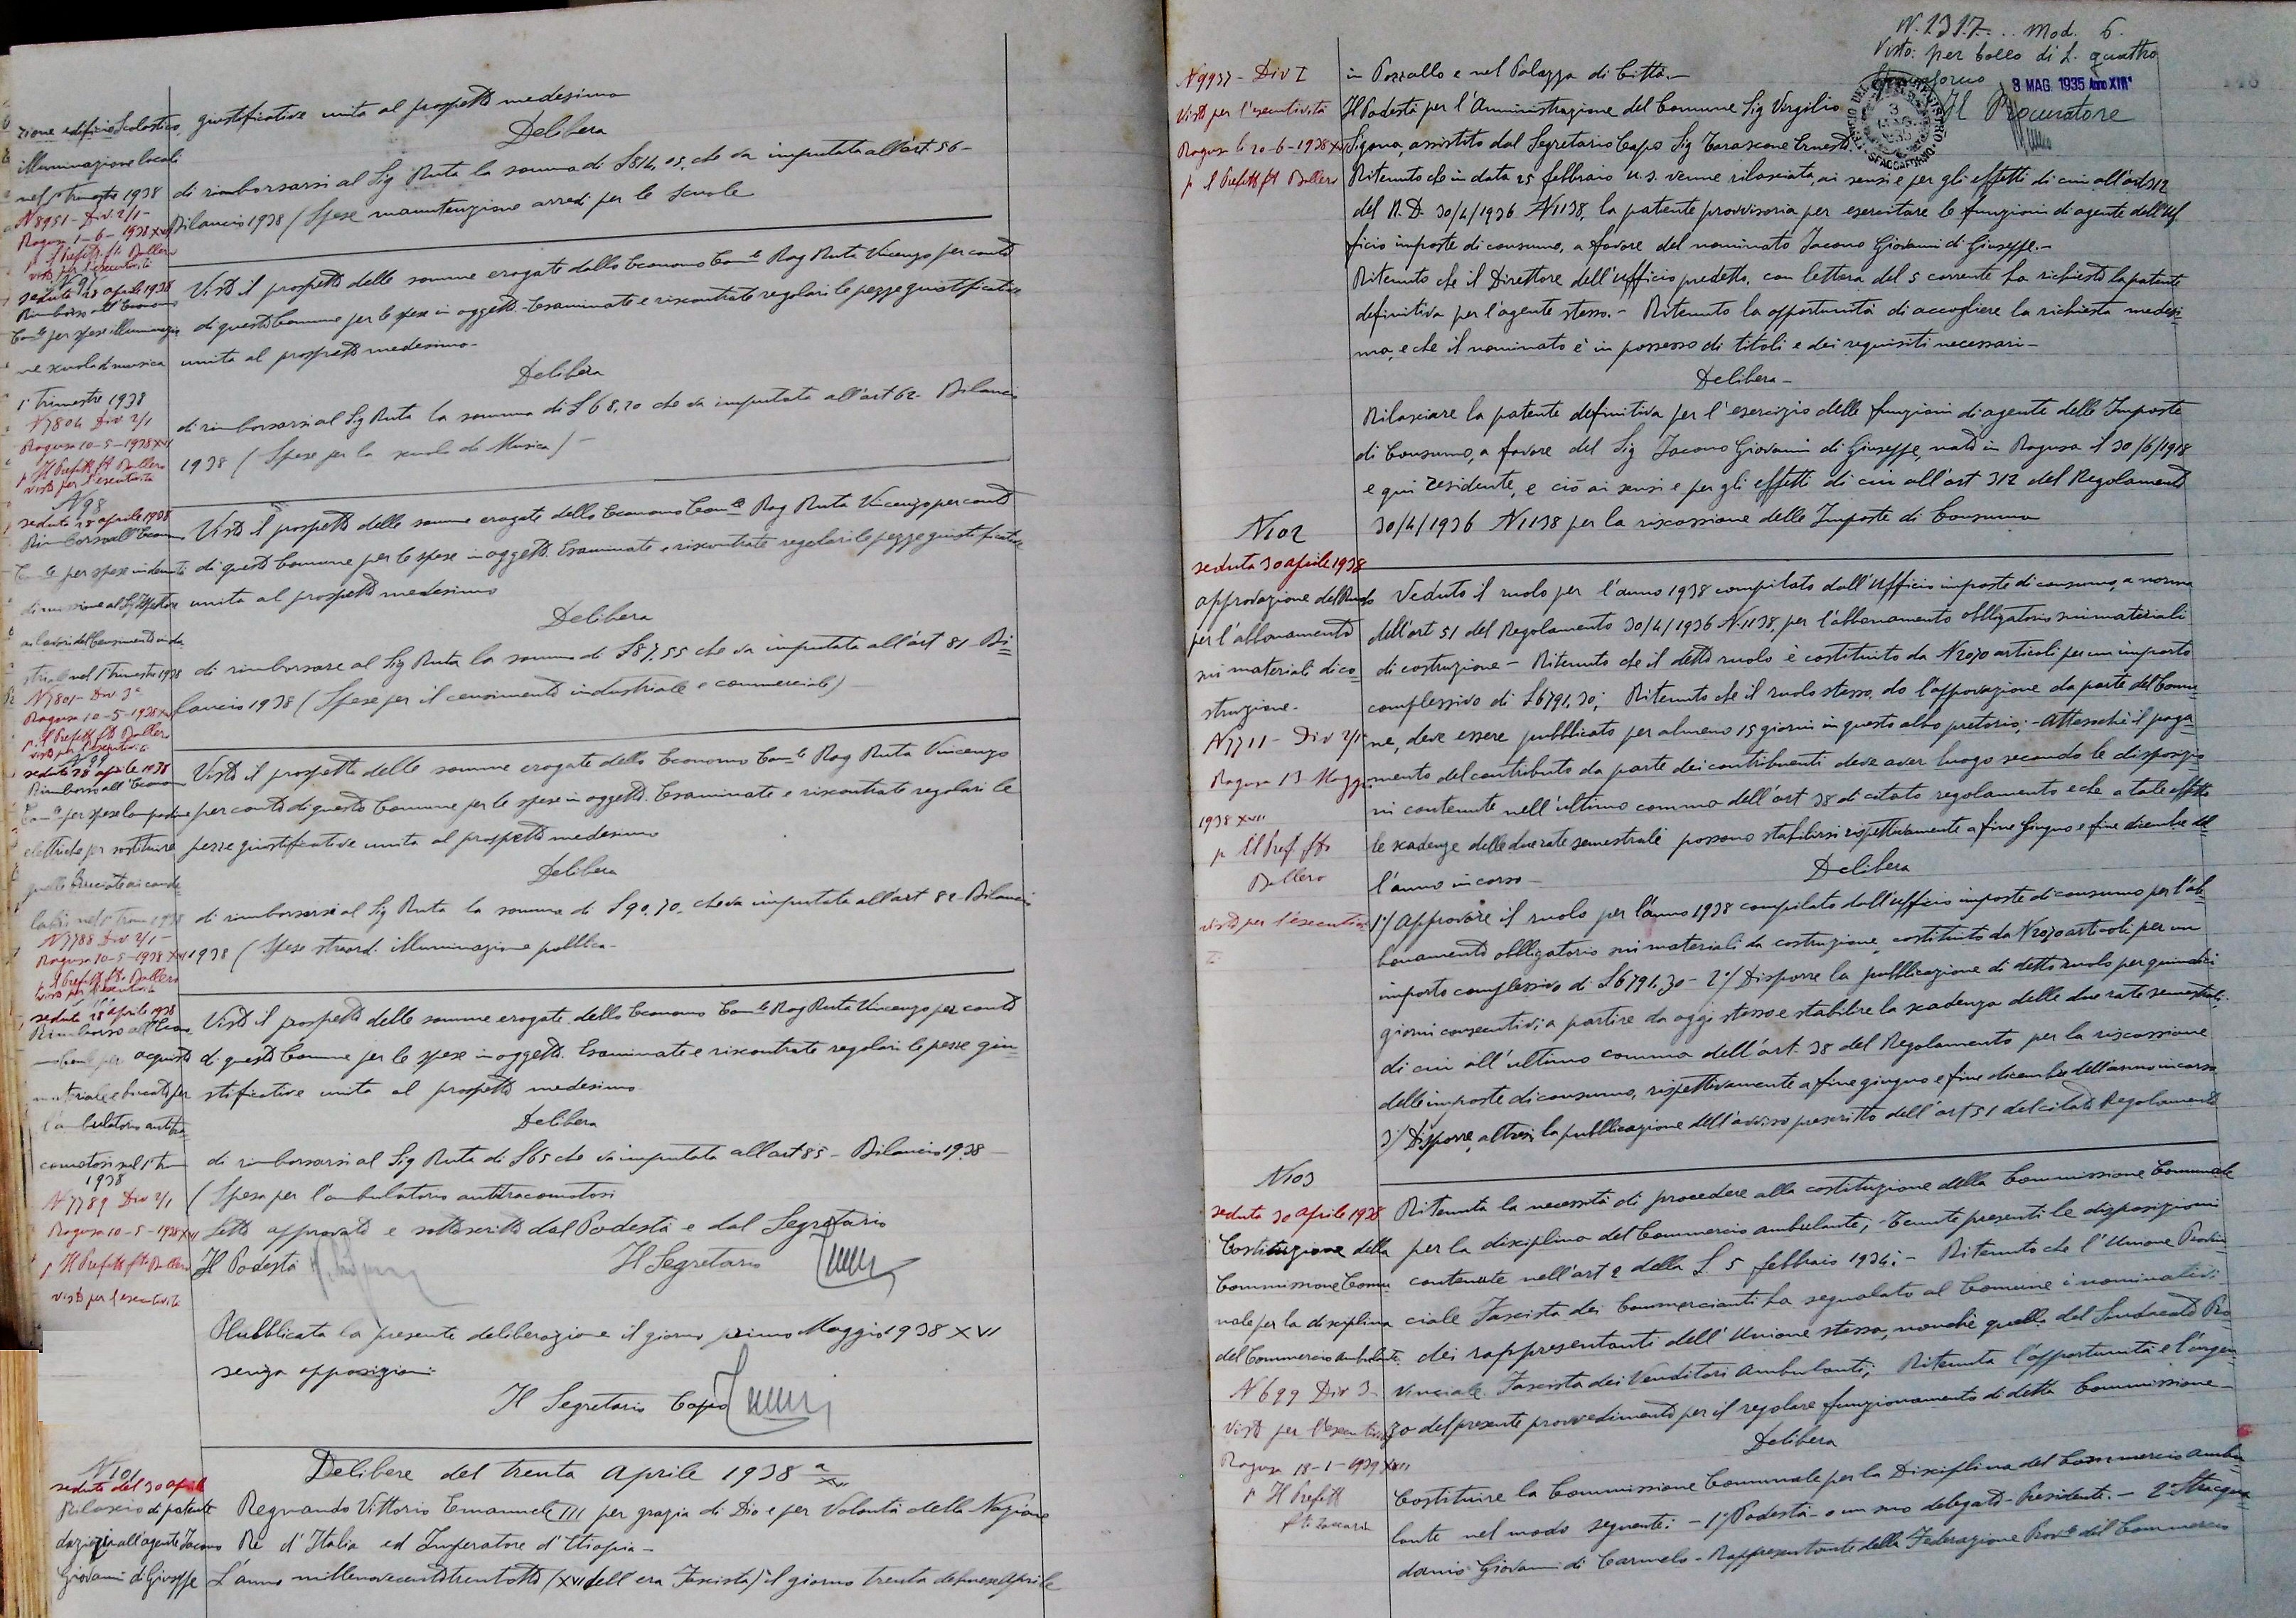 zione edificio Scolastico,
illuminazione locali
nel 1° trimestre 1938
N 8951 - Div. 2/1 -
Ragusa 1-6-1938 XVI
p. Il Prefetto fto Ballero
visto per l'esecutività
giustificative unita al prospetto medesimo
Delibera
di rimborsarsi al Sig Ruta la somma di £814,05, che va imputata all'art. 56 -
Bilancio 1938 (Spese manutenzione arredi per le scuole
seduta 28 aprile 1938
Rimborso all'Econom
Com.le per spese illuminazio
ne scuola di musica
1° trimestre 1938
N 7804 Div 2/1
Ragusa 10-5-1938 XVI
p Il Prefetto fto Ballero
visto per l'esecutività
Visto il prospetto delle somme erogate dallo Economo Com.le Rag Ruta Vincenzo per conto
di questo Comune per le spese in oggetto. Esaminate e riscontrate regolari le pezze giustificative
unita al prospetto medesimo -
Delibera
di rimborsarsi al Sig Ruta la somma di £68,20 che va imputata all'art 62 - Bilancio
1938 (Spese per la scuola di Musica) -
N 98
seduta 28 aprile 1938
Rimborso all'Econom
Com.le per spese indennità
di missione al Sig
ai lavori del Censimento indu
striale nel 1° trimestre 1938
N 7801 - Div 3ª
Ragusa 10-5-1938 XVI
p. Il Prefetto fto Ballero
visto per l'esecutività
Visto il prospetto delle somme erogate dello Economo Com.le Rag Ruta Vincenzo per conto
di questo Comune per le spese in oggetto. Esaminate e riscontrate regolari le pezze giustificative
unita al prospetto medesimo
Delibera
di rimborsare al Sig Ruta la somma di £87,55 che va imputata all'art 81 - Bi=
lancio 1938 (Spese per il censimento industriale e commerciale)
N 99
seduta 28 aprile 1938
Rimborso all'Econom
Com.le per spese lampadine
elettriche per sostituire
quelle bruciate ai cande
labri nel 1° Trim 1938
N 7788 Div 2/1 -
Ragusa 10-5-1938 XVI
p Il Prefetto fto Ballero
visto per l'esecutività
Visto il prospetto delle somme erogate dello Economo Com.le Rag Ruta Vincenzo
per conto di questo Comune per le spese in oggetto. Esaminate e riscontrate regolari le
pezze giustificative unita al prospetto medesimo
Delibera
di rimborsarsi al Sig Ruta la somma di £90,70, che va imputata all'art 82 - Bilancio
1938 (Spese straord. illuminazione pubblica -
seduta 28 aprile 1938
Rimborso all'Econo
per acquisto
materiale e bucato per
l'ambulatorio antitra
comatosi nel 1° trim
1938
N 7789 Div 2/1
Ragusa 10-5-1938 XVI
p Il Prefetto fto Ballero
visto per l'esecutività
Visto il prospetto delle somme erogate dello Economo Com.le Rag Ruta Vincenzo per conto
di questo Comune per le spese in oggetto. Esaminate e riscontrate regolari le pezze giu=
stificative unita al prospetto medesimo
Delibera
di rimborsarsi al Sig Ruta di £65 che va imputata all'art 85 - Bilancio 1938 -
(Spesa per l'ambulatorio antitracomatosi
Letto approvato e sottoscritto dal Podestà e dal Segretario
Il Podestà Il Segretario
Pubblicata la presente deliberazione il giorno primo Maggio 1938 XVI
senza opposizioni
Il Segretario Capo
N 101
seduta del 30 aprile
Rilascio di patente
daziaria all'agente Iacono
Giovanni di Giuseppe
Delibere del trenta Aprile 1938 a XVI
Regnando Vittorio Emanuele III per grazia di Dio e per Volontà della Nazione
Re d'Italia ed Imperatore d'Etiopia -
L'anno millenovecentotrentotto (XVI dell'era Fascista) il giorno trenta del mese Aprile
N. 1317... Mod. 6.
Visto: per bollo di L. quattro
3 MAG. 1935 Anno XIII°
Il Procuratore
UFFICIO DEL REGISTRO
SPACCAFORNO
N 9937 - Div I
Visto per l'esecutività
Ragusa li 20-6-1938 XVI
p Il Prefetto fto Ballero
in Pozzallo e nel Palazzo di Città. -
Il Podestà per l'Amministrazione del Comune Sig Vergilio
Sigona, assistito dal Segretario Capo Sig Tarascone Ernesto
Ritenuto che in data 25 febbraio u.s. venne rilasciata, ai sensi e per gli effetti di cui all'art 312
del R.D. 30/4/1936 N 1138, la patente provvisoria per esercitare le funzioni di agente dell'Uf
ficio imposte di consumo, a favore del nominato Iacono Giovanni di Giuseppe. -
Ritenuto che il Direttore dell'Ufficio predetto, con lettera del 5 corrente ha richiesto la patente
definitiva per l'agente stesso. - Ritenuto la opportunità di accogliere la richiesta medesi=
ma, e che il nominato è in possesso di titoli e dei requisiti necessari -
Delibera -
Rilasciare la patente definitiva per l'esercizio delle funzioni di agente delle Imposte
di Consumo, a favore del Sig Iacono Giovanni di Giuseppe, nato in Ragusa il 30/6/1918
e qui residente, e ciò ai sensi e per gli effetti di cui all'art 312 del Regolamento
30/4/1936 N 1138 per la riscossione delle Imposte di Consumo
N 102
seduta 30 aprile 1938
approvazione del Ruolo
per l'abbonamento
sui materiali di co
struzione -
N 7711 - Div 2/1
Ragusa 13 Maggio
1938 XVI
p Il Pref fto
Ballero
visto per l'esecutivi
Veduto il ruolo per l'anno 1938 compilato dall'Ufficio imposte di consumo, a norma
dell'art 51 del Regolamento 30/4/1936 N. 1138, per l'abbonamento obbligatorio sui materiali
di costruzione - Ritenuto che il detto ruolo è costituito da N 2030 articoli per un importo
complessivo di £6791,30; Ritenuto che il ruolo stesso, do l'approvazione da parte del Comu=
ne, deve essere pubblicato per almeno 15 giorni in questo albo pretorio; - Attesochè il paga=
mento del contributo da parte dei contribuenti deve aver luogo secondo le disposizio
ni contenute nell'ultimo comma dell'art 38 di citato regolamento e che a tale effetto
le scadenze delle due rate semestrali possono stabilirsi rispettivamente a fine Giugno e fine dicembre del=
l'anno in corso -
Delibera
1°/ Approvare il ruolo per l'anno 1938 compilato dall'ufficio imposte di consumo per l'ab=
bonamento obbligatorio sui materiali da costruzione, costituito da N 2030 articoli per un
importo complessivo di £6791,30 - 2°/ Disporre la pubblicazione di detto ruolo per quindici
giorni consecutivi, a partire da oggi stesso e stabilire la scadenza delle due rate semestrali,
di cui all'ultimo comma dell'art. 38 del Regolamento per la riscossione
delle imposte di consumo, rispettivamente a fine giugno e fine dicembre dell'anno in corso.
3°/ Disporre, altresì, la pubblicazione dell'avviso prescritto dell'art 51 del citato Regolamento
N 103
seduta 30 aprile 1938
Costituzione della
Commissione Comu
nale per la disciplina
del Commercio ambulante.
N 699 Div 3-
Visto per l'esecutività
Ragusa 18-1-1939 XVII
p Il Prefetto
fto Zaccaria
Ritenuta la necessità di procedere alla costituzione della Commissione Comunale
per la disciplina del Commercio ambulante; - Tenute presenti le disposizioni
contenute nell'art 2 della L. 5 febbraio 1934; - Ritenuto che l'Unione Provin=
ciale Fascista dei Commercianti ha segnalato al Comune i nominativi
dei rappresentanti dell'Unione stessa, nonchè quello del Sindacato Pro
vinciale Fascista dei Venditori Ambulanti; Ritenuta l'opportunità e l'urgen=
za del presente provvedimento per il regolare funzionamento di detta Commissione -
Delibera
Costituire la Commissione Comunale per la Disciplina del Commercio ambu=
lante nel modo seguente: - 1° Podestà - o un suo delegato - Presidente. - 2° Stracqua=
danio Giovanni di Carmelo - Rappresentante della Federazione Prov.le del Commercio